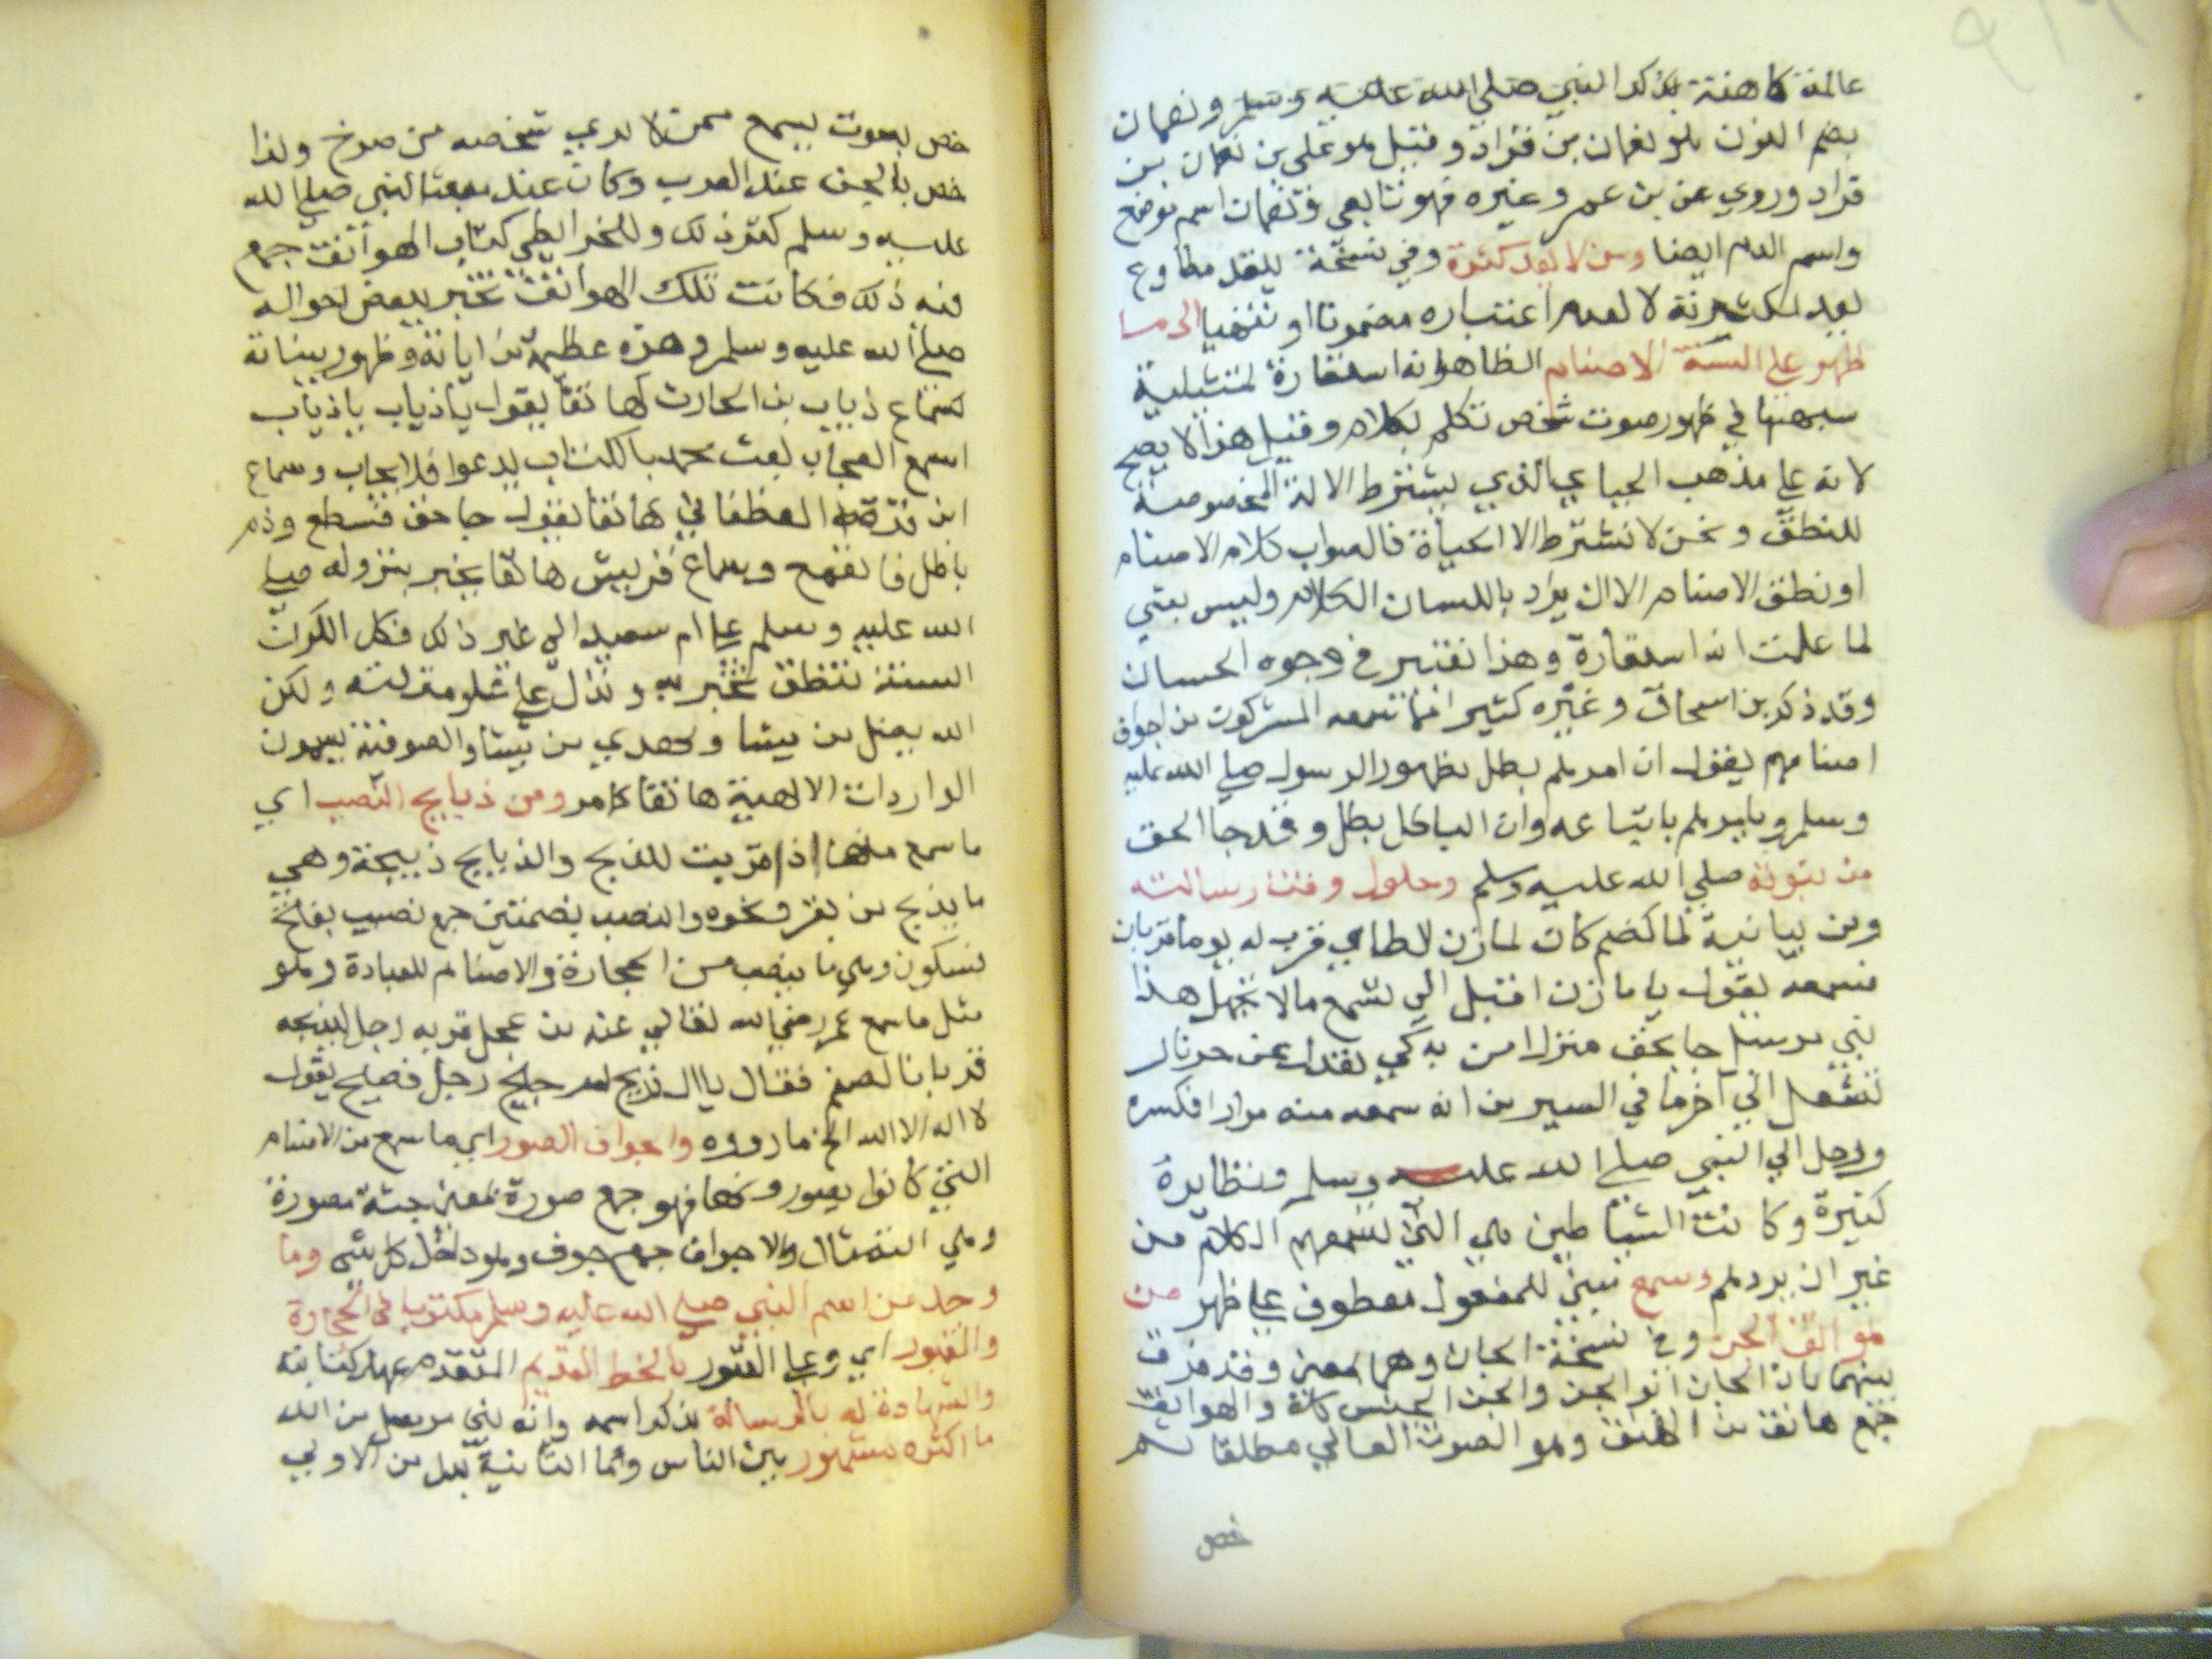 عالمة كاهنة تذكر النبي صلي الله عليه وسلم ونعمان
بضم النون هو نعمان بن قراد وقيل هو علي بن نعمان بن
قراد وروي عن بن عمر وغيره فهو تابعي ونعمان اسم موضع
واسم الدم ايضا ومن لا يعد كثرة وفي نسخة ينعد مطاوع
لعد لكثرته لا لعدم اعتباره مضمونا او منتهيا الى ما
ظهر علي السنة الاصنام الظاهر انه استعارة تمثيلية
شبهها في ظهور صوت شخص تكلم بكلام وقيل هذا لا يصح
لانه علي مذهب الجباعي الذي يشترط الالة المخصوصة
للنطق ونحن لا نشترط الا الحياة فالصواب كلام الاصنام
او نطق الاصنام الا ان يراد باللسان الكلام وليس بعتي
لما علمت انه استعارة وهذا تغبير في وجوه الحسان
وقد ذكر بن اسحاق وغيره كثير انما تسمعه المشركون من اجواف
اصنامهم يقول ان امرهم بطل بظهور الرسول صلي الله عليه
وسلم ويامرهم باتباعه وان الباطل بطل وقد جا الحق
من نبوته صلي الله عليه وسلم وحلول وقت رسالته
ومن بيانية لما كضم كان لمازن الطاعي قرب له يوما قربان
فسمعه يقول يا مازن اقبل الي تسمع ما لا تجهل هذا
نبي مرسل جا بحق منزل امن به كي تعدل عن حر نار
تشعل الي آخر ما في السير من انه سمعه منه مرارا فكسره
ورحل الي النبي صلي الله عليه وسلم ونظايره
كثيرة وكانت الشياطين هي التي تسمعهم الكلام من
غير ان يردهم وسمع مبني للمفعول معطوف علي ظهر من
هواتف الجن وفي نسخة الجان وهما بمعني وقد فرق
بينهما بان الجان ابو الجن والجن الجنس كافة والهواتف
جمع هاتف من الهتف وهو الصوت العالي مطلقا ثم
خص
خص بصوت يسمع ممن لا يري شخصه من صرخ ولذا
خص بالجن عند العرب وكان عند مبعث النبي صلي الله
عليه وسلم كثر ذلك وللخرايطي كتاب الهواتف جمع
فيه ذلك فكانت تلك الهواتف تخبر ببعض احواله
صلي الله عليه وسلم وهذه عظيمة من اياته وظهور بيناته
كسماع ذياب بن الحارث هاتفا يقول يا ذياب يا ذياب
اسمع العجاب بعث محمد بالكتاب يدعوا فلا يجاب وسماع
ابن قرة الغطفاني هاتفا يقول جا حق فسطع وذم
باطل فانقمع وسماع قريش هاتفا يخبر بنزوله صلي
الله عليه وسلم علي ام سعيد الي غير ذلك فكل الكون
السنة تنطق تخبر به وتدل علي علو منزلته ولكن
الله يضل من يشا ويهدي من يشا والصوفية يسمون
الواردات الالهية هاتفا كامر ومن ذبايح النصب اي
ما سمع منها اذا قربت للذبح والذبايح ذبيحة وهي
ما يذبح من بقر ونحوه والنصب بضمتين جمع نصيب بفتح
فسكون وهي ما ينصب من الحجارة والاصنام للعبادة وهو
مثل ما سمع عمر رضي الله تعالي عنه من عجل قربه رجل ليذبحه
قربانا لصنم فقال يا ال ذريح امر جليح رجل فصيح يقول
لا اله الا الله الخ ما رووه واجواف الصور اي ما سمع من الاصنام
التي كانوا يصورونها فهو جمع صورة بمعني جثة مصورة
وهي التمثال والاجواف جمع جوف وهو داخل كل شي وما
وجد من اسم النبي صلي الله عليه وسلم مكتوبا في الحجارة
والقبور اي وعلي القبور بالخط القديم المتقدم عهد كتابته
والشهادة له بالرسالة بذكر اسمه وانه نبي مرسل من الله
ما اكثره مشهور بين الناس وما الثانية بدل من الاولي